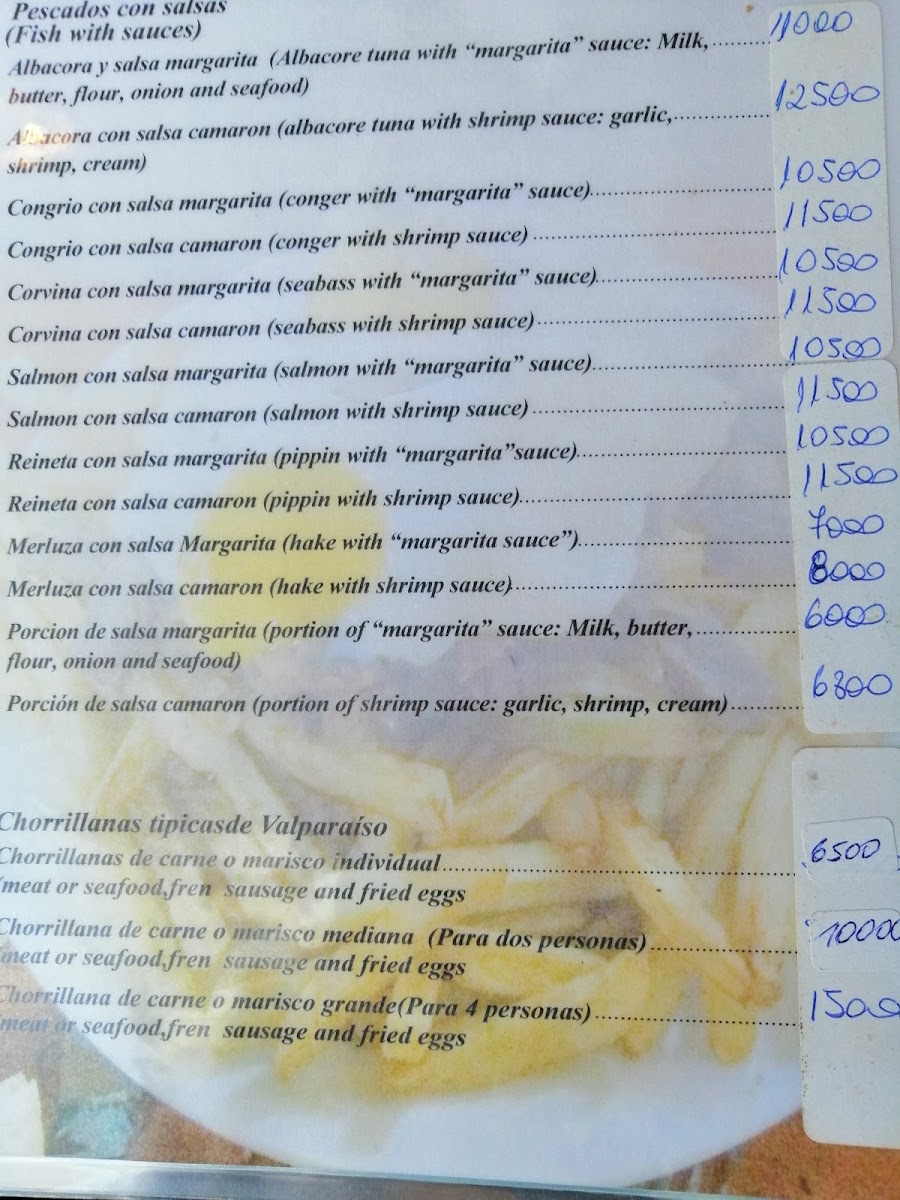 Pescados con salsas
(Fish with sauces)
Albacora y salsa margarita (Albacore tuna with “margarita” sauce: Milk, 11000
butter, flour, onion and seafood)
Albacora con salsa camaron (albacore tuna with shrimp sauce: garlic, 12500
shrimp, cream)
Congrio con salsa margarita (conger with “margarita” sauce) 10500
Congrio con salsa camaron (conger with shrimp sauce) 11500
Corvina con salsa margarita (seabass with “margarita” sauce) 10500
Corvina con salsa camaron (seabass with shrimp sauce) 11500
Salmon con salsa margarita (salmon with “margarita” sauce) 10500
Salmon con salsa camaron (salmon with shrimp sauce) 11500
Reineta con salsa margarita (pippin with “margarita”sauce) 10500
Reineta con salsa camaron (pippin with shrimp sauce) 11500
Merluza con salsa Margarita (hake with “margarita sauce”) 7000
Merluza con salsa camaron (hake with shrimp sauce) 8000
Porcion de salsa margarita (portion of “margarita” sauce: Milk, butter, 6000
flour, onion and seafood)
Porción de salsa camaron (portion of shrimp sauce: garlic, shrimp, cream)
Chorrillanas tipicasde Valparaíso
Chorrillanas de carne o marisco individual 6500
(meat or seafood,fren sausage and fried eggs
Chorrillana de carne o marisco mediana (Para dos personas) 10000
meat or seafood,fren sausage and fried eggs
Chorrillana de carne o marisco grande(Para 4 personas) 1500
meat or seafood,fren sausage and fried eggs